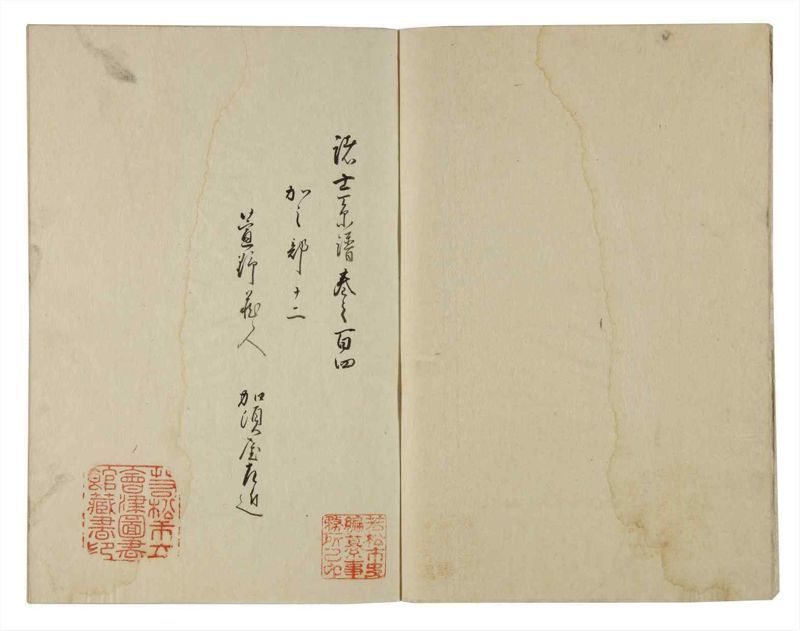 諸士系譜巻之百四
加之部十二
萱野権人　加須屋左近
若松市史
編纂事
務所之印
若松市立
會津圖書
館藏書印